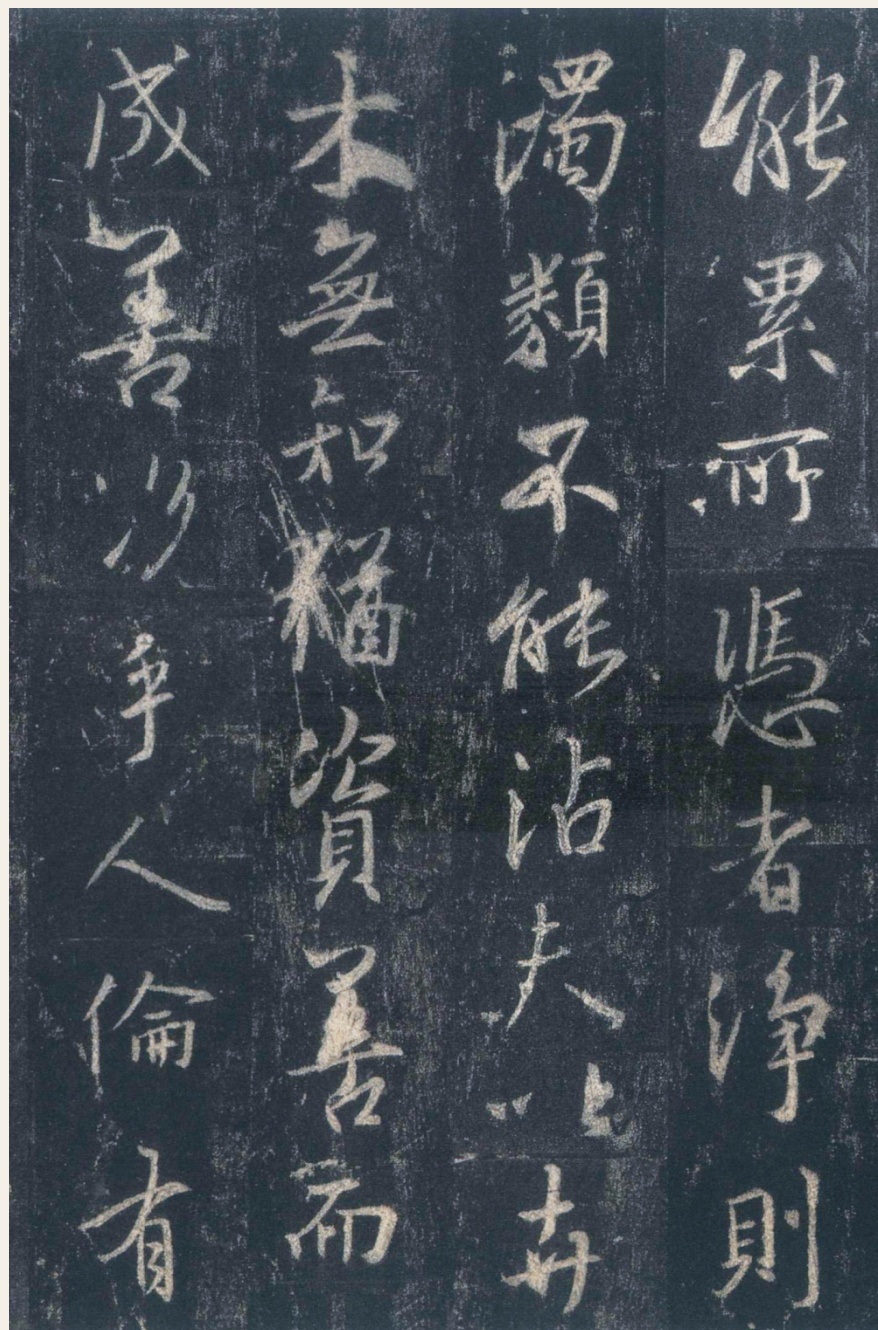 能累所憑者淨則
濁類不能沾夫以卉
木無知猶資善而
成善況乎人倫有